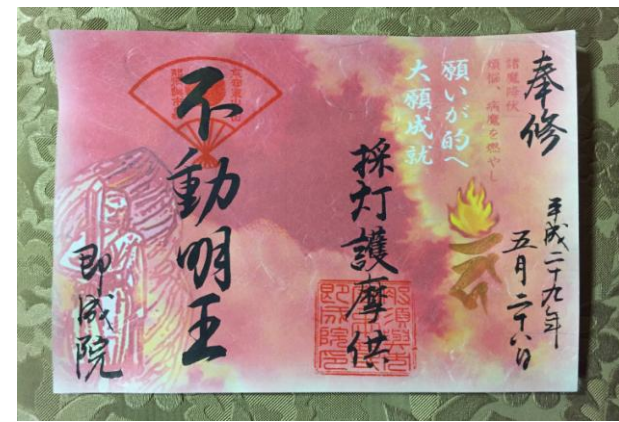 奉修
平成二十九年
五月二十八日
諸魔降伏
煩悩、病魔を燃やし
願いが的へ
大願成就
採灯護摩供
不動明王
即成院